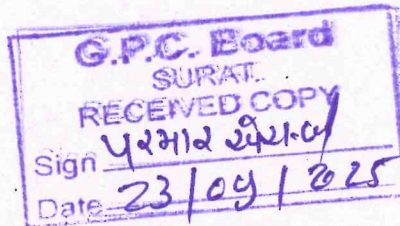 G.P.C. Board
SURAT.
RECEIVED COPY
Sign પરમાર
Date 23/09/2025